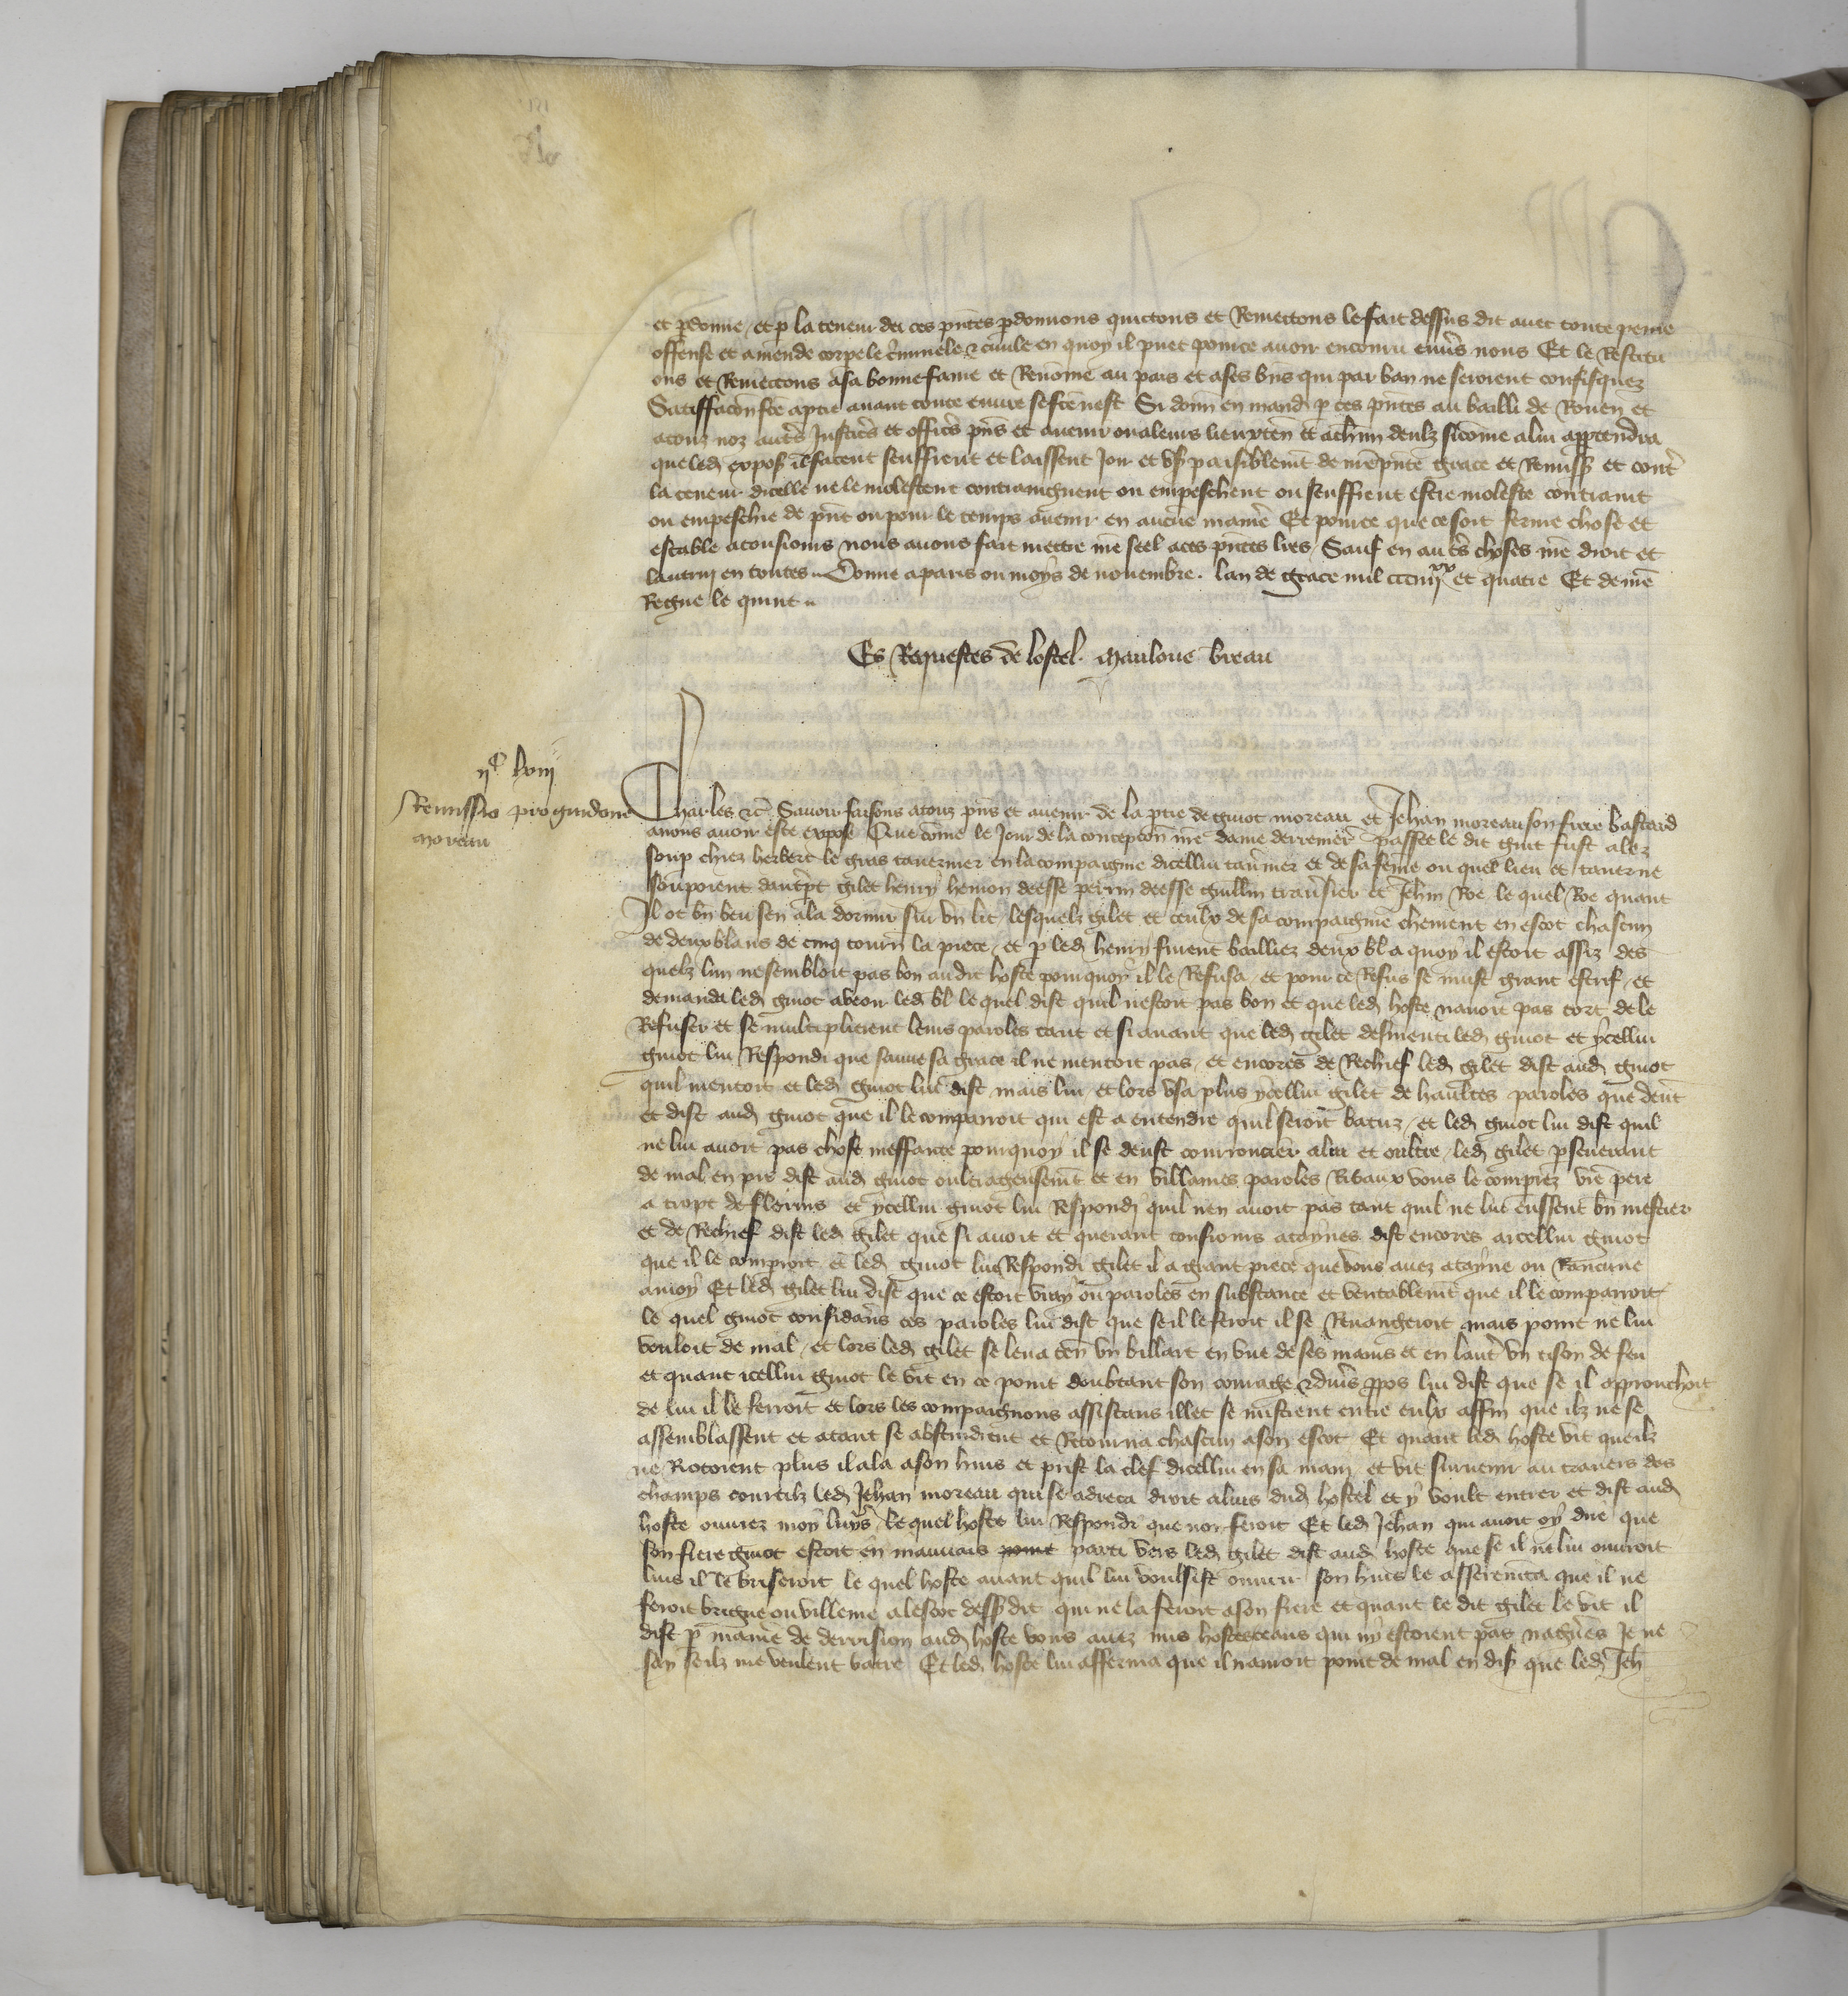 et pdonne et p la teneur de ces pntes pdonnons quictons et Remectons le fait dessus dit avec toute peine
offense et amende corpele criminele & civile en quoy il puet pour ce avoir encouru envers nous Et le Restitu
ons et Remectons a sa bonne fame et Renomee au pais et a ses bns qui par ban ne seroient confisquez
Satiffacon fce aptie avant toute euvre se fce nest Si donn en mand p ces pntes au bailli de Rouen et
a touz noz autres Justices et offices pns et avenir ou a leurs lieuxten et a chun deulz si come a lui apptendra
que led expos il facent seuffrent et laissent Joir et us paisiblement de nre pnte grace et Remiss et contre
la teneur dicelle ne le molestent contraingnent ou empeschent ou seuffrent estre moleste contraint
ou empeschie de pnt ou pour le temps avenir en aucune maniere Et pour ce que ce soit ferme chose et
estable a tousjours nous avons fait mettre nre seel a ces pntes lres Sauf en autres choses nre droit et
lautruy en toutes Donne a paris ou moys de novembre. lan de grace mil ccc iiijxx et quatre Et de nre
Regne le quint
Es Requestes de lostel. Mauloue breau
ijc lviij
Remissio pro guidone
Moreau
Charles &c Savoir faisons a touz pns et avenir de la ptie de guiot moreau et Jehan moreau son frere bastard
avons avoir este expose Que come le Jour de la concepcion nre dame derrenier passee le dit guiot fust alez
soup chiez herbert le gras tavernier en la compaignie dicellui tavnier et de sa feme ou quel lieu et taverne
souppoient dautrept gilet henry hemon deesse perrin deesse guillin travsier et Jehin Roe le quel Roe quant
Il ot bn beu sen ala dormir sur un lit lesquelz gilet et ceulx de sa compaignie cheirent en escot chascun
de deux blans de cinq tourn la piece et p led henry furent bailliez deux bl a quoy il estoit assiz des
quelz lun ne sembloit pas bon au dit hoste pour quoy il le Refusa et pour ce Refus se must grant estrif et
demanda led guiot a veoir led bl le quel dist quil nestoit pas bon et que led hoste navoit pas tort de le
Refuser et se multiplierent leurs paroles tant et si avant que led gilet desmenti led guiot et ycellui
guiot lui Respondi que sauve sa grace il ne mentoit pas et encores de Rechief led gilet dist aud guiot
quil mentoit et led guiot lui dist mais lui et lors usa plus ycellui gilet de haultes paroles que devt
et dist aud guiot que il le comparroit qui est a entendre quil seroit batuz et led guiot lui dist quil
ne lui avoit pas chose meffaite pour quoy il se deust courroucier a lui et oultre led gilet pseverant
de mal en pis dist aud guiot oultrageusemt et en villaines paroles Ribaux vous le comprez vre pere
a tropt de florins et ycellui guiot lui Respondi quil nen avoit pas tant quil ne lui eussent bn mestier
et de Rechief dist led gilet que si avoit et querant tousjours ataynes dist encores a icellui guiot
que il le comproit et led guiot lui Respondi gilet il a grant piece que vous avez atayne ou Rancune
a moy Et led gilet lui dist que ce estoit vray ou paroles en substance et veritablemt que il le comparroit
le quel guiot considans ces paroles lui dist que se il le feroit il se Revangeroit mais point ne lui
vouloit de mal et lors led gilet se leva ten un billart en une de ses mains et en lautre un tison de feu
et quant icellui guiot le vit en ce point doubtant son courage & divs ppos lui dist que se il approuchoit
de lui il le ferroit et lors les compaignons assistans illec se mistrent entre eulx affin que ilz ne se
assemblassent et atant se abstindrent et Retourna chascun a son escot Et quant led hoste vit que ilz
ne Riotoient plus il ala a son huis et prist la clef dicellui en sa main et vit survenir au travers des
champs courtilz led Jehan moreau qui se adreca droit a luis dud hostel et y voult entrer et dist aud
hoste ouvrez moy luys le quel hoste lui Respondi que non feroit Et led Jehan qui avoit oy dire que
son frere guiot estoit en mauvais point parti vers led gilet dist aud hoste que se il ne lui ouvroit
luis il le briseroit le quel hoste avant quil lui voulsist ouvrir son huis le asserementa que il ne
feroit brigue ou villenie a lescot dessdit qui ne la feroit a son frere et quant le dit gilet le vit il
dist p maniere de derrision aud hoste vous avez mis hosteceans qui ny estoient pas nagueres Je ne
say seilz me veulent batre Et led hoste lui afferma que il navoit point de mal en dis que led Jeh